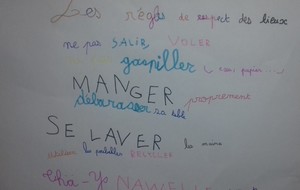 Les régles de respect des lieux
ne pas SALIR, VOLER
gaspiller
MANGER proprement
débarasser sa table
SE LAVER les mains
les poubelles RECYCLER
Cha-Yo NAWEL